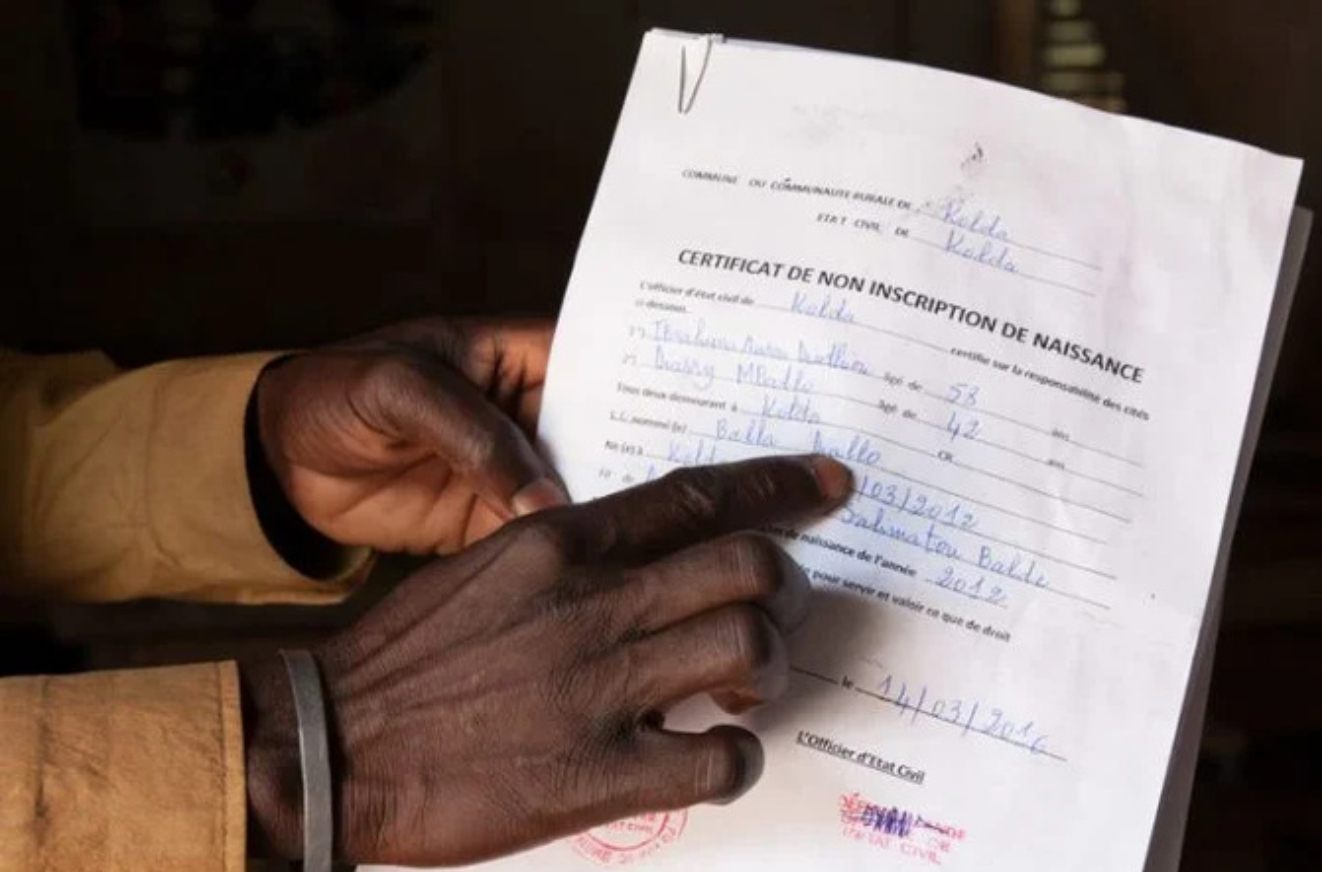 COMMUNE OU COMMUNAUTE RURALE DE Kolda
ETAT CIVIL DE Kolda
CERTIFICAT DE NON INSCRIPTION DE NAISSANCE
L'officier d'état civil de Kolda certifie sur la responsabilité des cités
ci-dessous
1°) Ibrahima âgé de 58 ans
2°) MBallo âgé de 42 ans
Tous deux demeurant à Kolda CR
nommé (e) Balla Diallo
Né (e) à /03/2012
de Salimatou Balde
de naissance de l'année 2012
pour servir et valoir ce que de droit
le 14/03/2016
L'Officier d'Etat Civil
ETAT CIVIL